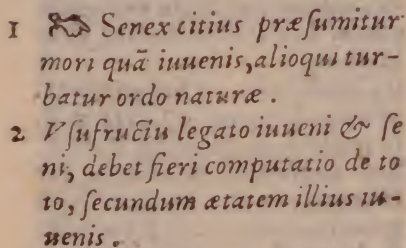 1 ☞ Senex citius præſumitur
mori quã iuuenis, alioqui tur-
batur ordo naturæ.
2 Vſufructu legato iuueni & ſe
ni, debet fieri computatio de to
to, ſecundum ætatem illius iu-
uenis.